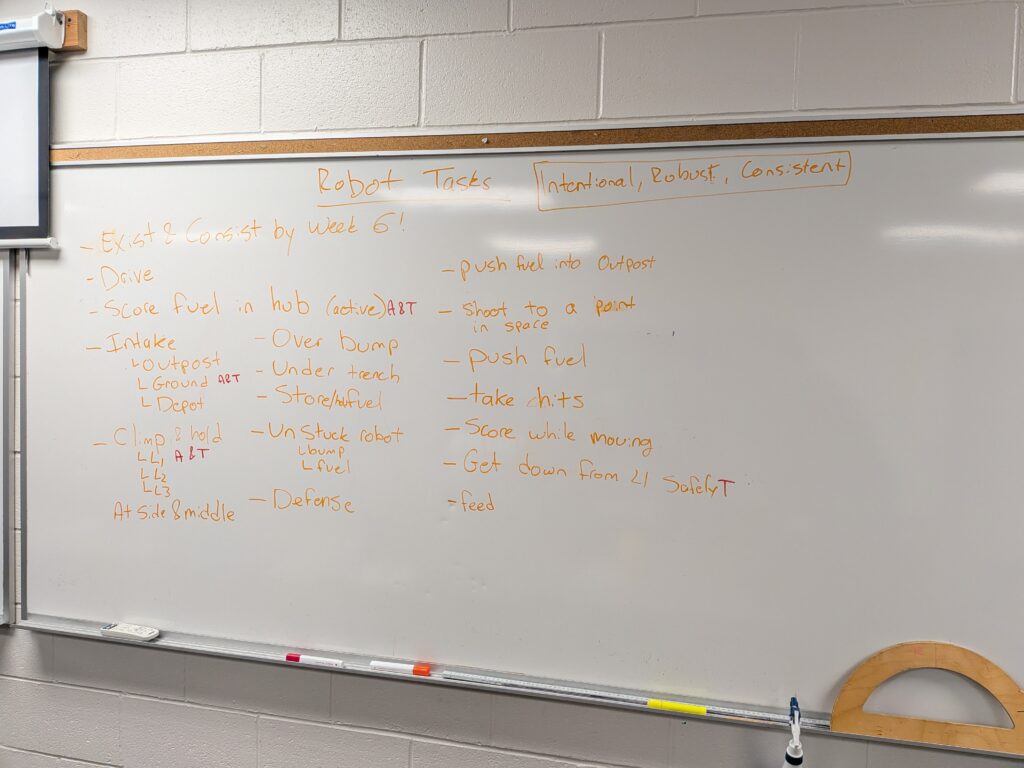 Robot Tasks
Intentional, Robust, Consistent
- Exist & Consist by Week 6!
- Drive
- Score fuel in hub (active) A&T
- Intake
└ Outpost
└ Ground A&T
└ Depot
- Climp & hold
└ L1 A&T
└ L2
└ L3
At side & middle
- Over bump
- Under trench
- Store/ fuel
- Unstuck robot
└ bump
└ fuel
- Defense
- push fuel into Outpost
- Shoot to a point
in space
- push fuel
- take hits
- Score while moving
- Get down from L1 Safely T
- feed